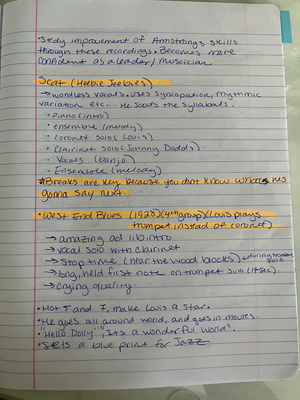 •Steady improvement of Armstrongs skills
through these recordings. Becomes more
confident as a leader/musician
Scat (Heebie Jeebies)
→wordless vocals. uses syncopation, rhythmic
variation etc... He scats the syllabals.
• Piano (intro)
• ensemble (melody)
• coronet solo (Louis)
• (clarinet solo (Johnny Dodds)
• Vocals (banjo)
• Ensemble (melody)
*Breaks are key because you don't know what hes
gonna say next.
•West End Blues (1928) (4th group) (Louis plays
trumpet instead of coronet)
→amazing ad lib intro
→vocal solo with clarinet
→Stop time (hear the wood blocks) during trombone solo
→long, held first note on trumpet solo
→crying quality
• Hot 5 and 7, make Louis a star.
•He goes all around world, and goes in movies.
•"Hello Dolly" "Its a wonderful world".
•Sets a blue print for Jazz.